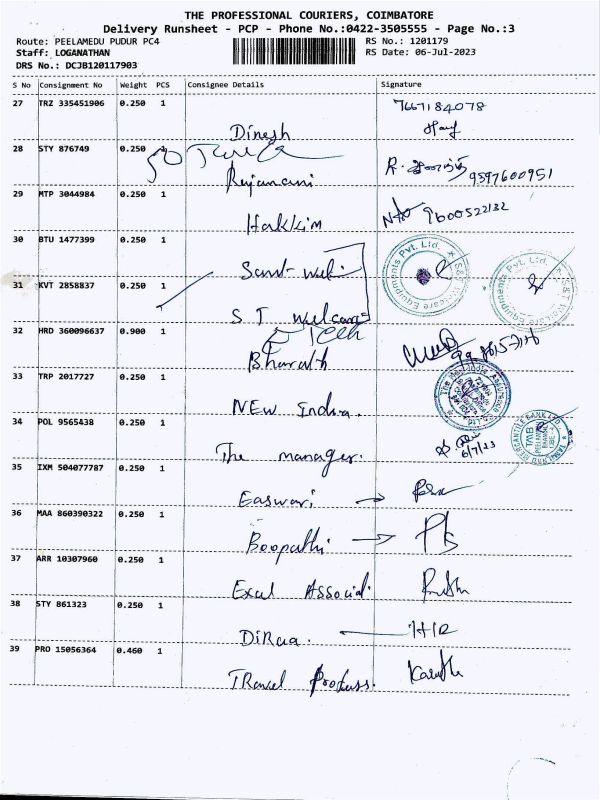 THE PROFESSIONAL COURIERS, COIMBATORE
Delivery Runsheet - PCP - Phone No.:0422-3505555 - Page No.:3
Route: PEELAMEDU PUDUR PC4
RS No.: 1201179
Staff: LOGANATHAN
RS Date: 06-Jul-2023
DRS No.: DCJB120117903
S No Consignment No Weight PCS Consignee Details Signature
27 TRZ 335451906 0.250 1 Dinesh 7667184078
28 STY 876749 0.250 Rajamani R. 9597600951
29 MTP 3044984 0.250 1 Hakkim 9600522132
30 BTU 1477399 0.250 1
31 KVT 2858837 0.250 1 S T
32 HRD 360096637 0.900 1 Bharath
33 TRP 2017727 0.250 1 NEW India.
34 POL 9565438 0.250 1 The manager. 6/7/23
35 IXM 504077787 0.250 1 Easwari
36 MAA 860390322 0.250 1 Boopathi
37 ARR 10307960 0.250 1 Excel Associat.
38 STY 861323 0.250 1 DiRaa. HR
39 PRO 15056364 0.460 1 TRavel